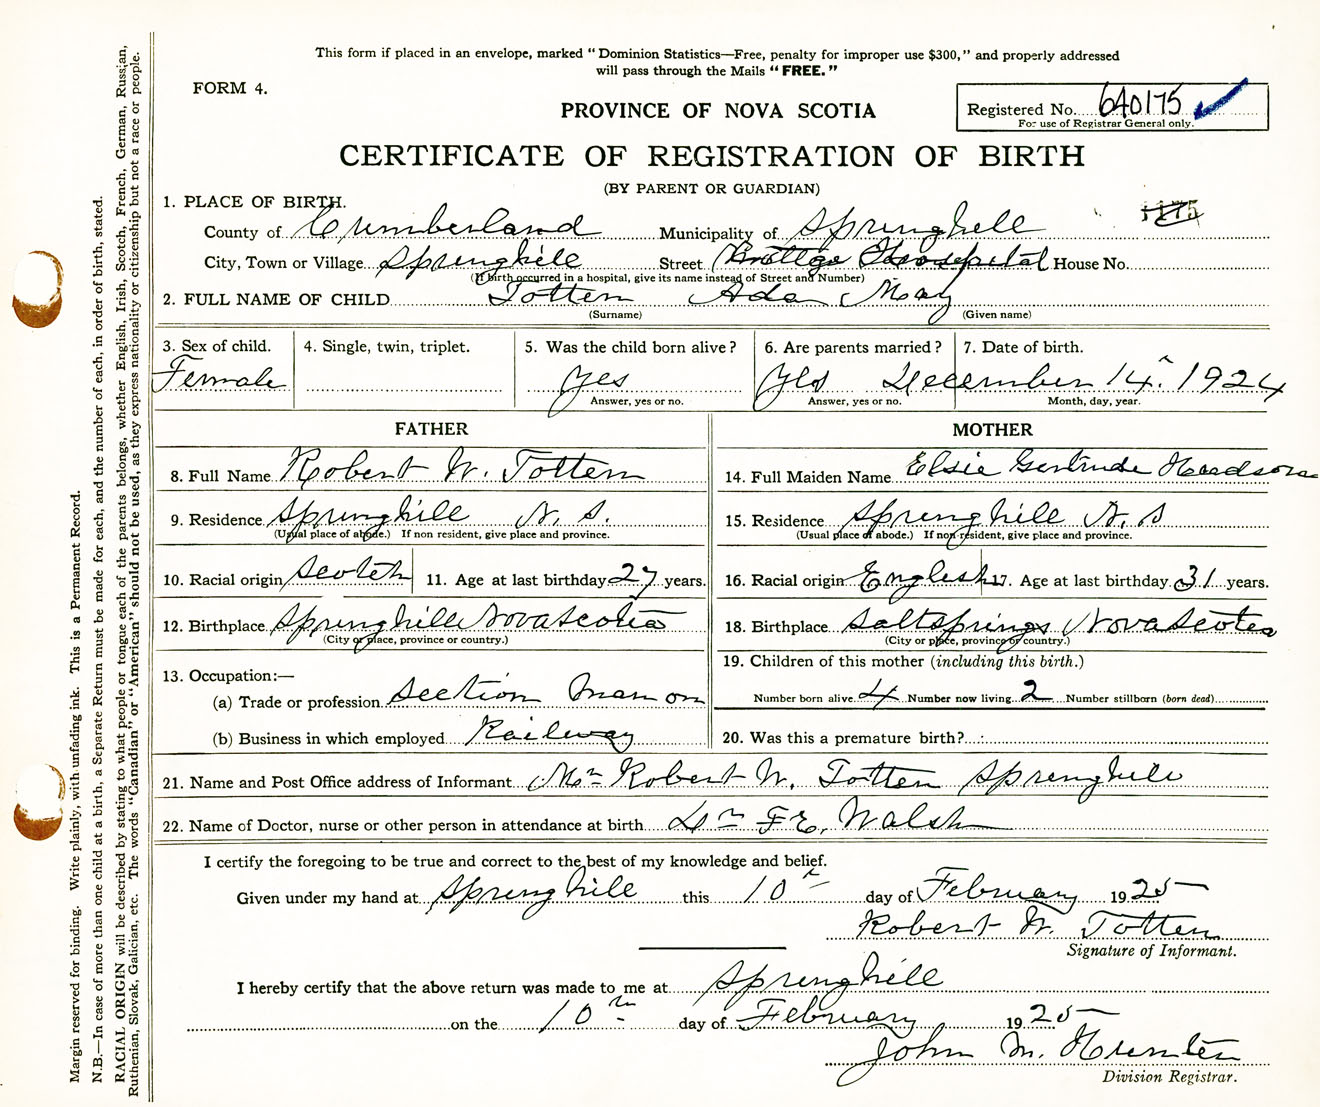 This form if placed in an envelope, marked "Dominion Statistics—Free, penalty for improper use $300," and properly addressed
will pass through the Mails "FREE."
FORM 4.
PROVINCE OF NOVA SCOTIA
Registered No. 640175
For use of Registrar General only.
CERTIFICATE OF REGISTRATION OF BIRTH
(BY PARENT OR GUARDIAN)
1. PLACE OF BIRTH.
County of Cumberland Municipality of Springhill
City, Town or Village Springhill Street Hospital House No.
(If birth occurred in a hospital, give its name instead of Street and Number)
2. FULL NAME OF CHILD Totten Ada May
(Surname) (Given name)
3. Sex of child. 4. Single, twin, triplet. 5. Was the child born alive? 6. Are parents married? 7. Date of birth.
Female yes yes December 14. 1924
Answer, yes or no. Answer, yes or no. Month, day, year.
FATHER MOTHER
8. Full Name Robert W. Totten 14. Full Maiden Name Elsie Gertrude
9. Residence Springhill N. S. 15. Residence Springhill N. S
(Usual place of abode.) If non resident, give place and province. (Usual place of abode.) If non resident, give place and province.
10. Racial origin Scotch 11. Age at last birthday 27 years. 16. Racial origin English 17. Age at last birthday 31 years.
12. Birthplace Springhill Nova Scotia 18. Birthplace Saltsprings Nova Scotia
(City or place, province or country.) (City or place, province or country.)
13. Occupation:— 19. Children of this mother (including this birth.)
(a) Trade or profession Section man on Number born alive 4 Number now living 2 Number stillborn (born dead)
(b) Business in which employed Railway 20. Was this a premature birth?
21. Name and Post Office address of Informant Mr Robert W. Totten Springhill
22. Name of Doctor, nurse or other person in attendance at birth Dr F.E. Walsh
I certify the foregoing to be true and correct to the best of my knowledge and belief.
Given under my hand at Springhill this 10th day of February 1925
Robert W. Totten
Signature of Informant.
I hereby certify that the above return was made to me at Springhill
on the 10th day of February 1925
John M. Hunter
Division Registrar.
Margin reserved for binding. Write plainly, with unfading ink. This is a Permanent Record.
N.B.—In case of more than one child at a birth, a Separate Return must be made for each, and the number of each, in order of birth, stated.
RACIAL ORIGIN will be described by stating to what people or tongue each of the parents belongs, whether English, Irish, Scotch, French, German, Russian,
Ruthenian, Slovak, Galician, etc. The words "Canadian" or "American" should not be used, as they express nationality or citizenship but not a race or people.